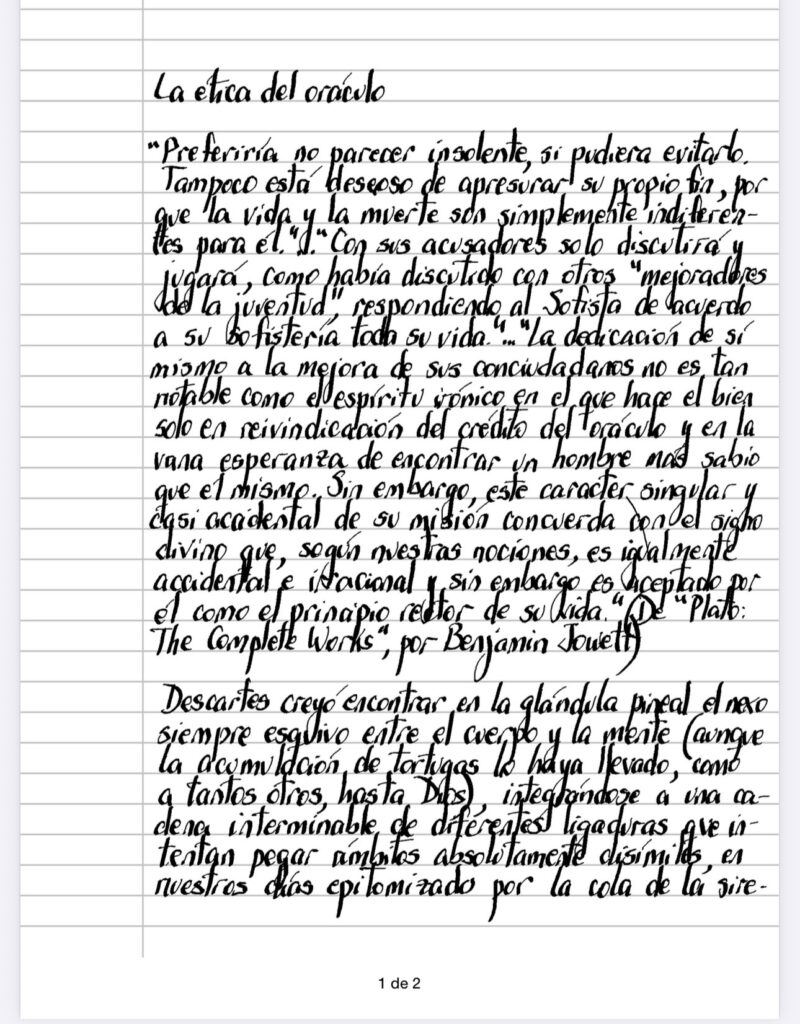 La etica del oráculo
"Preferiría no parecer insolente, si pudiera evitarlo.
Tampoco está deseoso de apresurar su propio fin, por
que la vida y la muerte son simplemente indiferen-
tes para él."..."Con sus acusadores solo discutirá y
jugará, como había discutido con otros "mejoradores
de la juventud", respondiendo al Sofista de acuerdo
a su sofistería toda su vida."..."La dedicación de sí
mismo a la mejora de sus conciudadanos no es tan
notable como el espíritu irónico en el que hace el bien
solo en reivindicación del crédito del oráculo y en la
vana esperanza de encontrar un hombre más sabio
que el mismo. Sin embargo, este carácter singular y
casi accidental de su misión concuerda con el signo
divino que, según nuestras nociones, es igualmente
accidental e irracional y sin embargo es aceptado por
él como el principio rector de su vida." (De "Plato:
The Complete Works", por Benjamin Jowett)
Descartes creyó encontrar en la glándula pineal el nexo
siempre esquivo entre el cuerpo y la mente (aunque
la acumulación de tortugas lo haya llevado, como
a tantos otros, hasta Dios), integrándose a una ca-
dena interminable de diferentes ligaduras que in-
tentan pegar ámbitos absolutamente disímiles, en
nuestros días epitomizado por la cola de la sire-
1 de 2